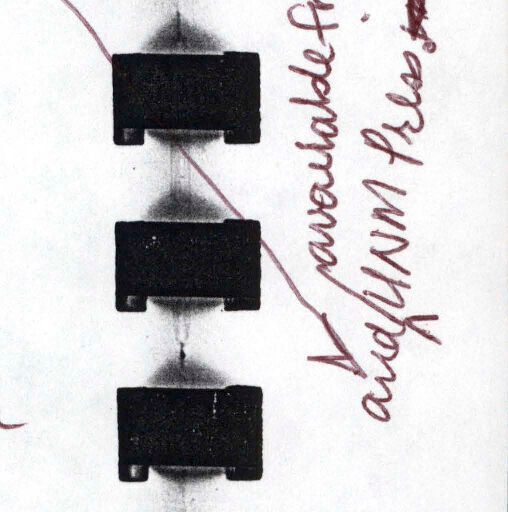 available fr
and/UNM Press.